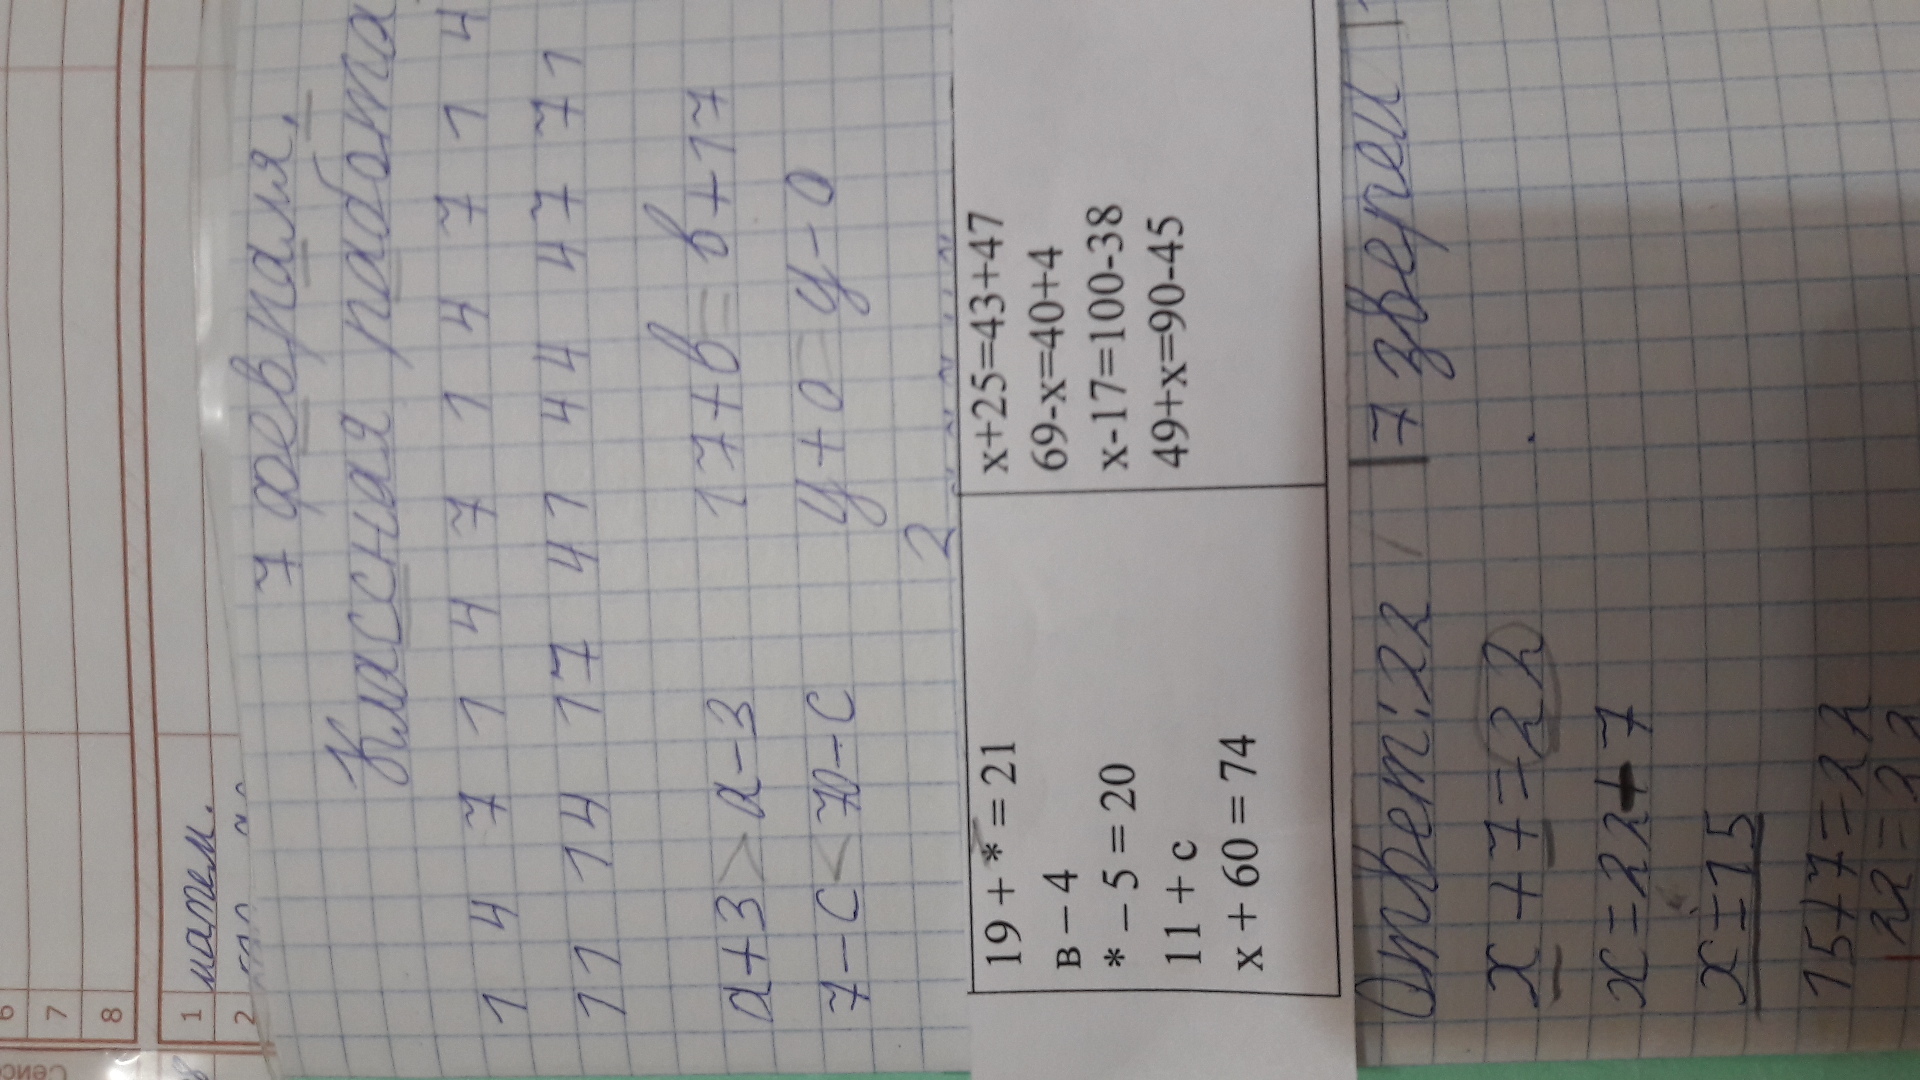 6
7
8
1 матем.
2
7 февраля.
Классная работа
1 4 7 1 4 7 1 4 7 1 4
11 14 17 41 44 47 71
а+3 > а-3 17+в = в+17
7-с < 70-с у+0 = у-0
2
19 + * = 21
в – 4
* – 5 = 20
11 + с
х + 60 = 74
х+25=43+47
69-х=40+4
х-17=100-38
49+х=90-45
Ответ: 22 17 зверей
х+7=22
х=22-7
х=15
15+7=22
22=22